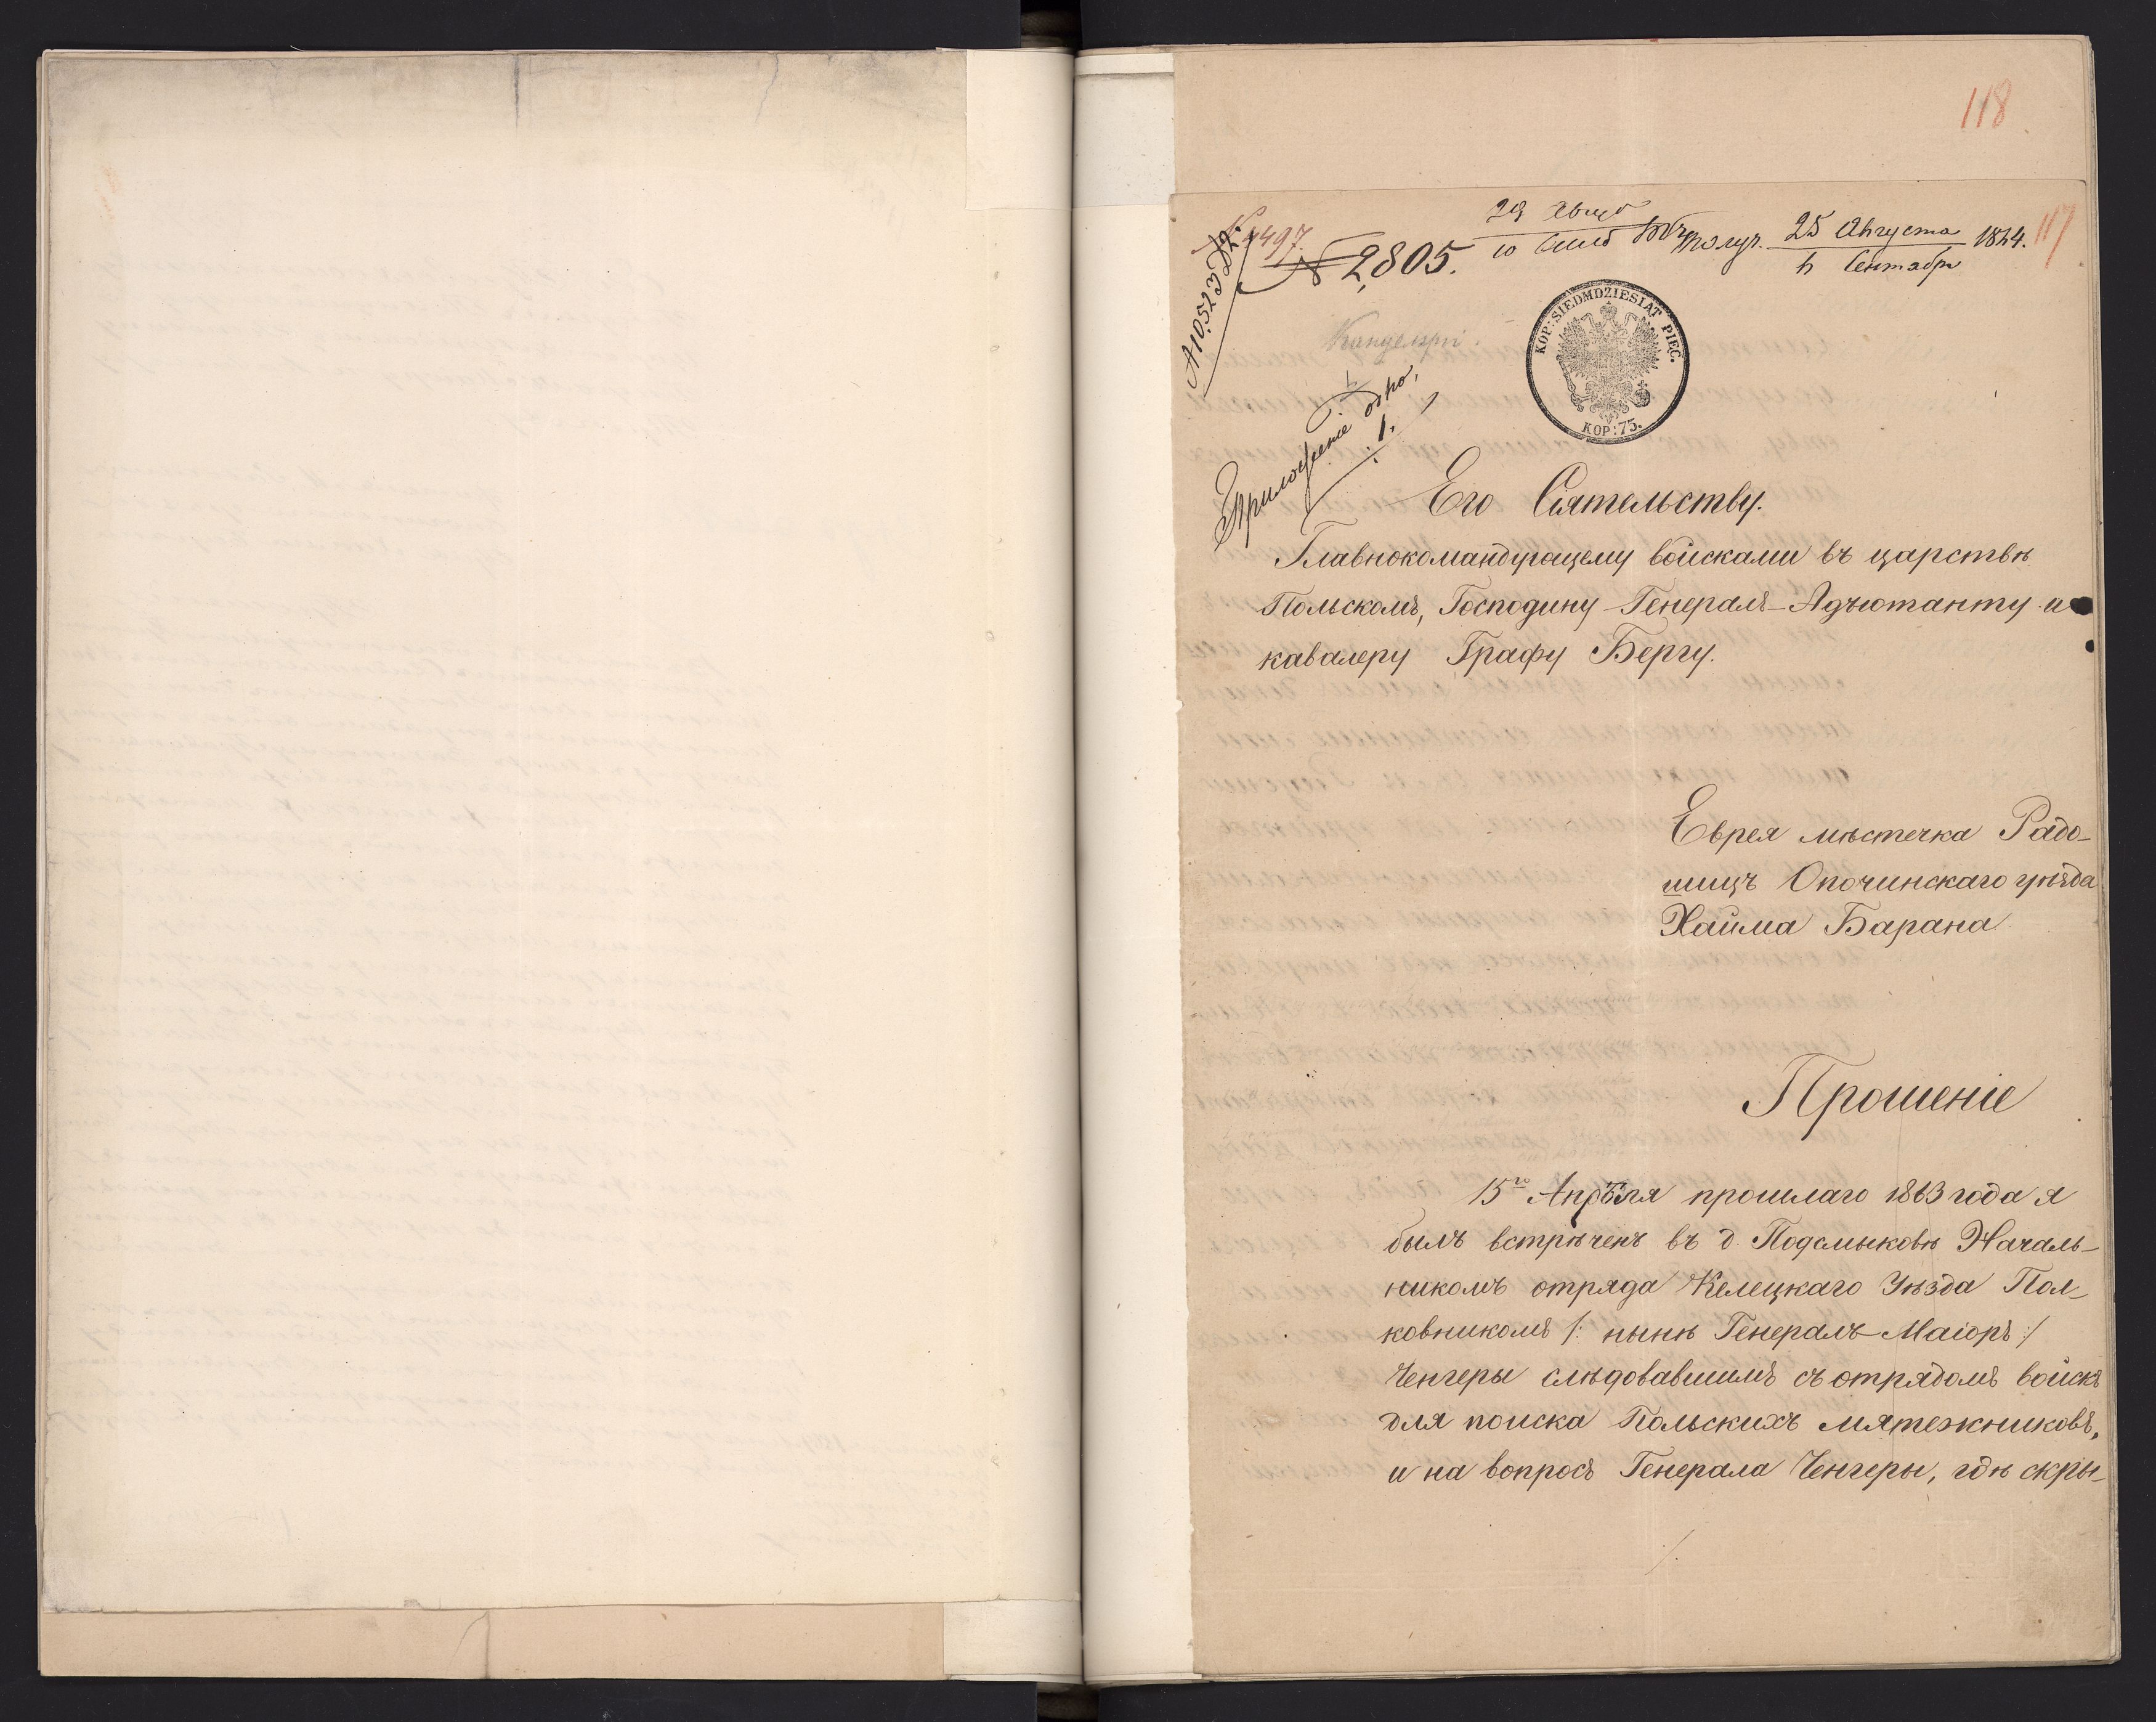 118
117
№ 2805.
Получ. 25 Августа 1864.
6 Сентября
KOP: SIEDMDZIESIĄT PIĘC.
KOP: 75.
Приложеніе одно,
1.
Его Сіятельству.
Главнокомандующему войсками въ царствѣ
Польскомъ, Господину Генералъ-Адъютанту и
кавалеру Графу Бергу.
Еврея мѣстечка Радо-
шицъ Опочинскаго уѣзда
Хаима Барана
Прошеніе
15го Апрѣля прошлаго 1863 года я
былъ встрѣченъ въ д. Подлыковѣ Началь-
никомъ отряда Келецкаго Уѣзда Пол-
ковникомъ /: нынѣ Генералъ-Маіоръ :/
Ченгеры слѣдовавшимъ съ отрядомъ войскъ
для поиска Польскихъ мятежниковъ,
и на вопросъ Генерала Ченгеры, гдѣ скры-